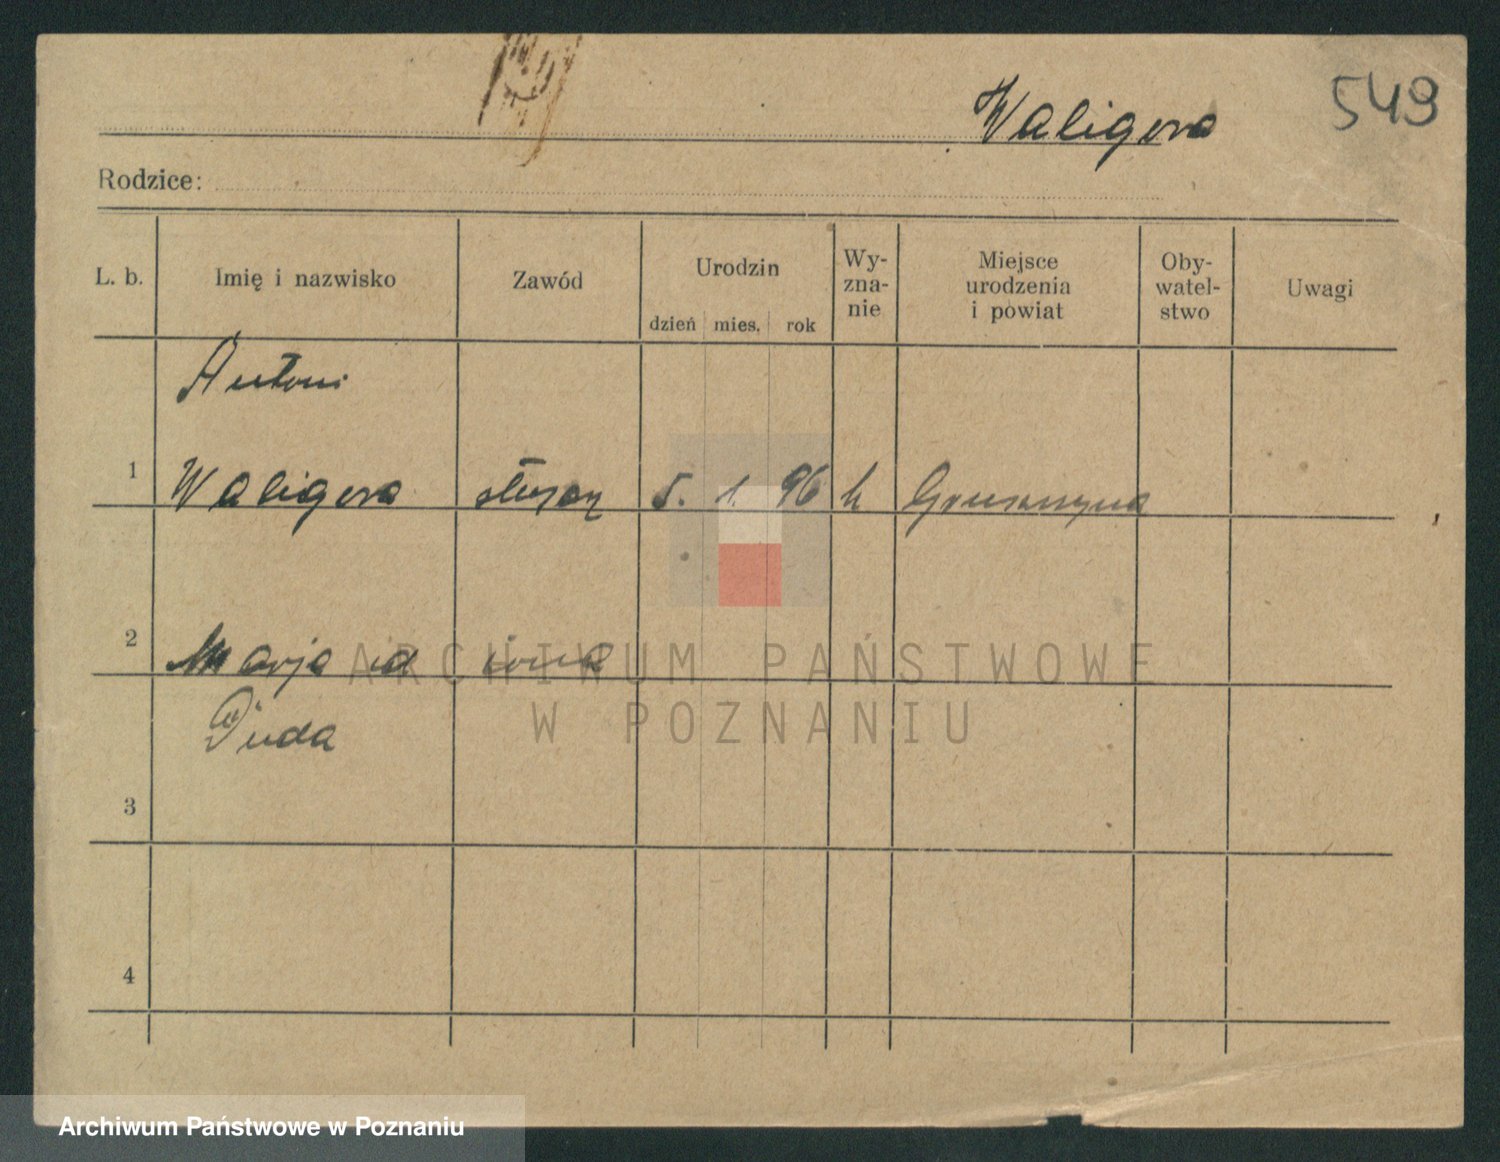 Waligora
549
Rodzice:
L. b.
Imię i nazwisko
Zawód
Urodzin
dzień
mies.
rok
Wy-
zna-
nie
Miejsce
urodzenia
i powiat
Oby-
watel-
stwo
Uwagi
Antoni
1 Waligora 5. 1. 96 k
2 Marja
Duda
3
4
ARCHIWUM PAŃSTWOWE
W POZNANIU
Archiwum Państwowe w Poznaniu